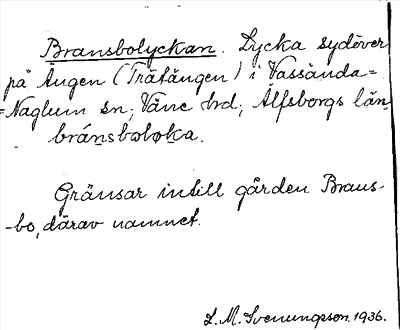 Bransbolyckan. Lycka sydöver
på Ängen (Trätängen) i Vassända=
=Naglum sn; Väne hrd; Älfsborgs län.
bránsbolo̥ka.
Gränsar intill gården Brans-
-bo, därav namnet.
L. M. Svenungsson. 1936.